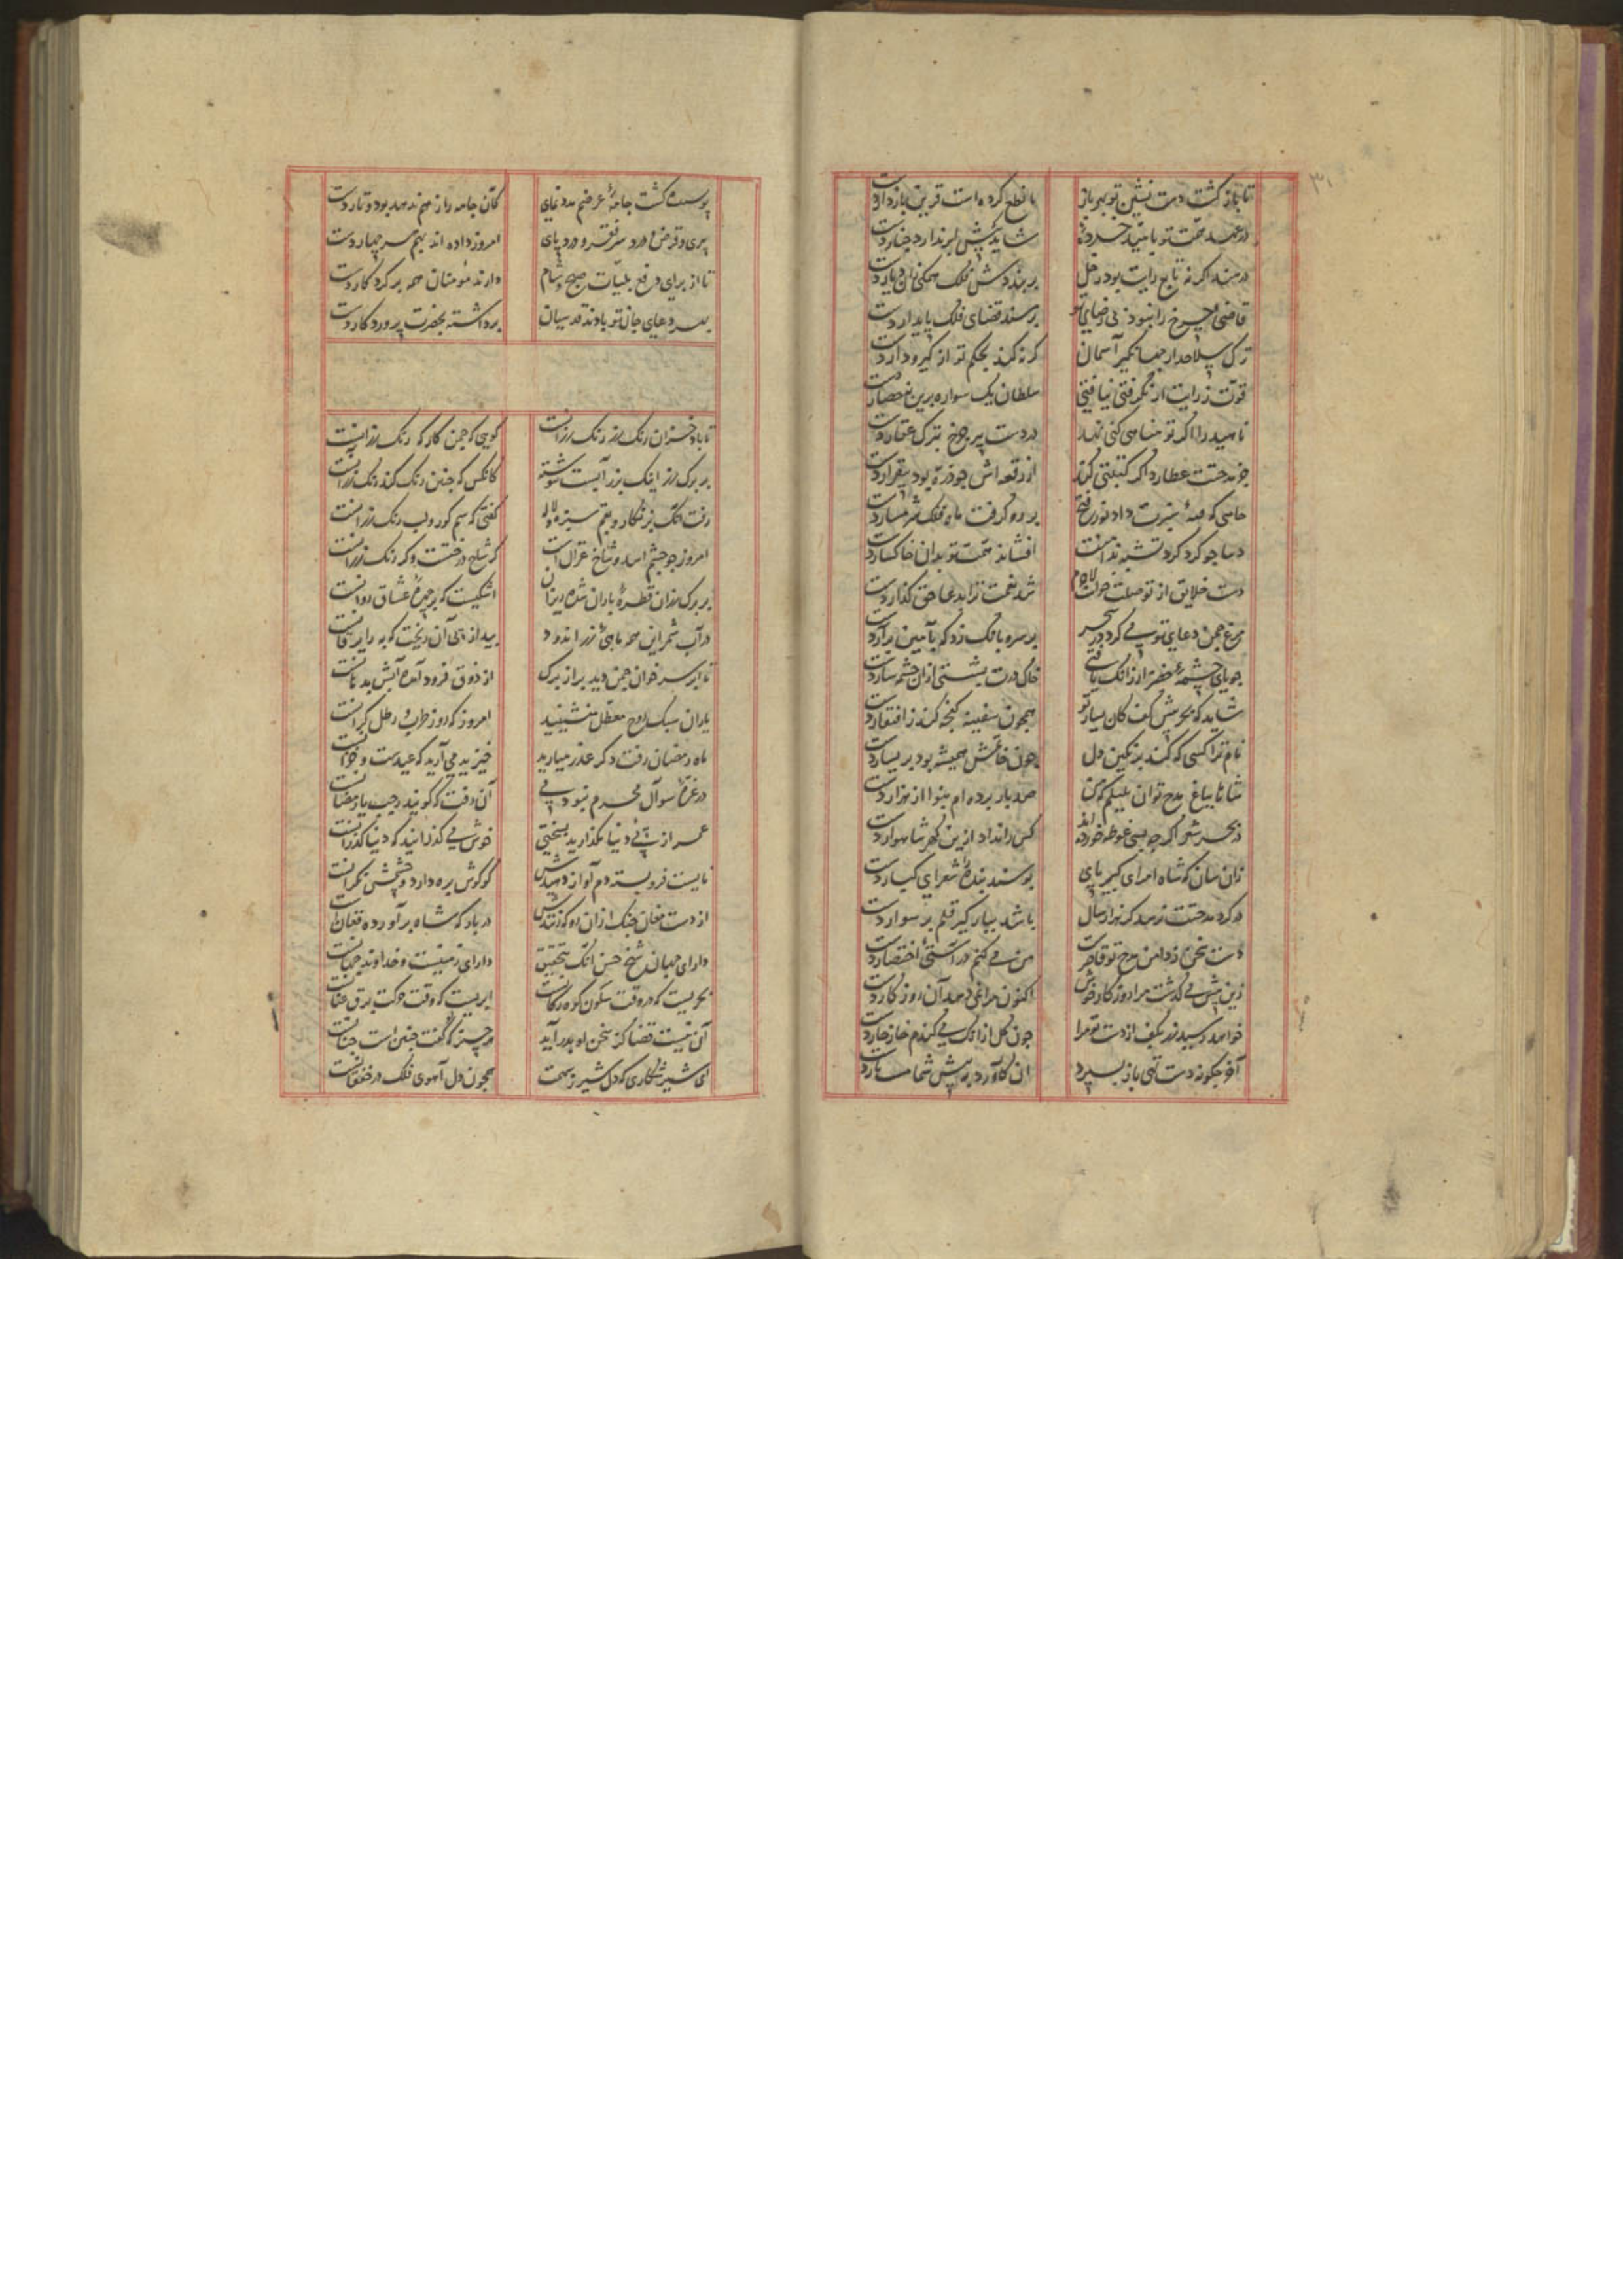 ۳۱
تا باز گشت دست نشین تو بهر باز با قطع کرده است قرین باز دارد دست
در عهد همتت تو شاید پیش ابر ندارد چنار دست
در هند اگر نه تابع رایت بود زحل بر بنددش فلک
قاضی چرخ را نبود بی رضای تو بر سند قضای فلک پایدار دست
ترک سلاحدار جهانگیر آسمان گر نه کند بحکم تو از گیر و دار دست
قوت ز رایت ار نگرفتی نیافتی سلطان یک سواره برین نه حصار دست
ناهید را اگر تو مناهی کنی در دست پیر چرخ بترک عقار دست
جز مدحتت عطارد اگر کتبتی کند از رقعه اش چو ذره بود بیقرار دست
بر رو گرفت ماه فلک شرمسار دست
دنیا چو گرد کرد تشبه بدامنت افشاند همت تو بدان خاکسار دست
دست خلایق از تو شد نعمت ترا بدعا حق گذار دست
مرغ چمن دعای تو می کرد در سحر بر سرو بانگ زد که بآمین بر آر دست
جویای چشمه خضر ار زانک یافتی خاک درت بشستی ازان چشمه سار دست
شاید که بحر پیش کف کان یسار تو همچون سفینه کنجه کند ز افتقار دست
نام ترا کسی که کند بر نگین دل چون خاتمش همیشه بود بر یسار دست
شاها بباغ مدح تو آن بلبلم که من صد بار برده ام بنوا از هزار دست
در بحر شعر اگر چه بسی غوطه خورده اند کس را نداد ازین گهر شاهوار دست
زان سان که شاه امرای کبیر پای بوسند بنده شعرای کبار دست
در گرد مدحتت نرسد گر هزار سال باشد بپای گیر قلم بر سوار دست
دست سخن ز دامن مدح تو قاصرست من می کنم در آستی اختصار دست
زین پیش می گذشت مرا روزگار خوش اکنون مرا نمی دهد آن روزگار دست
خواهد رسید زر بکف از دست تو مرا چون گل از آنک می کندم خار خار دست
آخر چگونه دست تهی باز پس برد آن کاورد به پیش شما دست
پوسیده گشت جامه عرضم مدد نمای کان جامه را ز هم ندهد پود و تار دست
پیری و قرض و درد سر فقر و درد پای امروز داده اند بهم هر چهار دست
تا از برای دفع بلیات صبح و شام دارند مؤمنان همه بر کردگار دست
بهر دعای جان تو بادند قدسیان برداشته بحضرت پروردگار دست
تا باد خزان رنگ رز و رنگ رزانست گویی که چمن کارگه رنگ رزانست
بر برگ رز اینک بزر آبست نوشته کانکس که چنین رنگ کند رنگ رز آنست
رفت آنک بزنگار و بقم سبزه و لاله گفتی که سم گور و لب رنگ رزانست
امروز چو چشم اسد و شاخ غزال است گر شاخ درختست وگر رنگ رزانست
بر برگ رزان قطره باران شده ریزان اشکیست که بر چهره عشاق روانست
در آب شمر این همه ماهی زر اندود بید از پی آن ریخت که به را یرقانست
تا ابر سر خوان چمن دید پر از برگ از ذوق فرود آمده آبش بدهانست
یاران سبک روح معطل منشینید امروز که روز طرب و رطل گرانست
ماه رمضان رفت دگر عذر میارید خیزید می آرید که عیدست و خزانست
در غره شوال محرم نبود می آن رفت که گویند رجب یا رمضانست
عمر از پی دنیا مگذارید بسختی خوش می گذرانید که دنیا گذرانست
نایست فرو بسته دم آواز دهیدش کو گوش بره دارد و چشمش نگرانست
از دست مغان چنگ ازان رو که زنندش در بارگه شاه برآورده فغانست
دارای جهان شیخ حسن آنک بتحقیق دارای زمینست و خداوند جهانست
بحریست که در وقت سکون کوه رکابست ابریست که وقت حرکت برق عنانست
آن نیست قضا کز سخن او بدر آید هر چیز که گفت چنین است چنانست
ای شیر شکاری که دل شیر ز سهمت همچون دل آهوی فلک در خفقانست